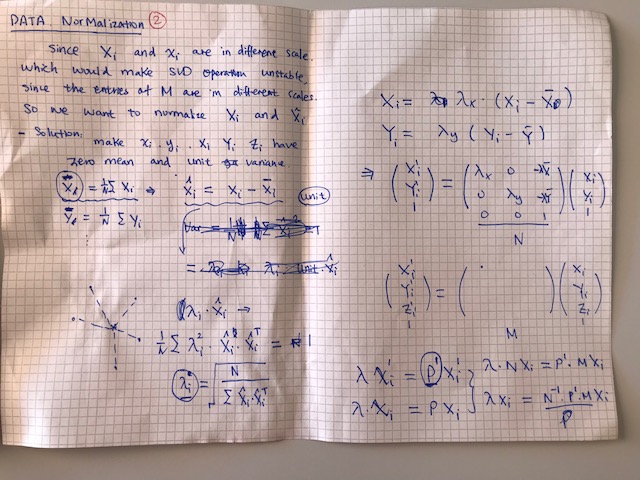 DATA NorMalization ②
since Xi and xi are in different scale.
which would make SVD operation unstable,
since the entries of M are in different scales.
So we want to normalize Xi and
- Solution:
make xi . yi . Xi Yi Zi have
zero mean and unit variance.
= 1/N Σ Xi ⇒ X̂i = Xi - X̄i unit
= 1/N Σ Yi
⋮
λi · X̂i →
1/N Σ λi² · X̂i · X̂iᵀ = 1
λi = √(N / Σ X̂i · X̂iᵀ)
Xi = λx · (Xi -
Yi = λy (Yi - Ȳ)
⇒ (Xi' Yi' 1) = (λx 0 -λX̄ 0 λy 0 0 1) (Xi Yi 1)
N
(Xi' Yi' Zi' 1) = ( ) (Xi Yi Zi 1)
M
λ Xi' = P' Xi' } λ · N Xi = P' · M Xi
λ · Xi = P Xi λ Xi = N⁻¹ · P' · M Xi
P